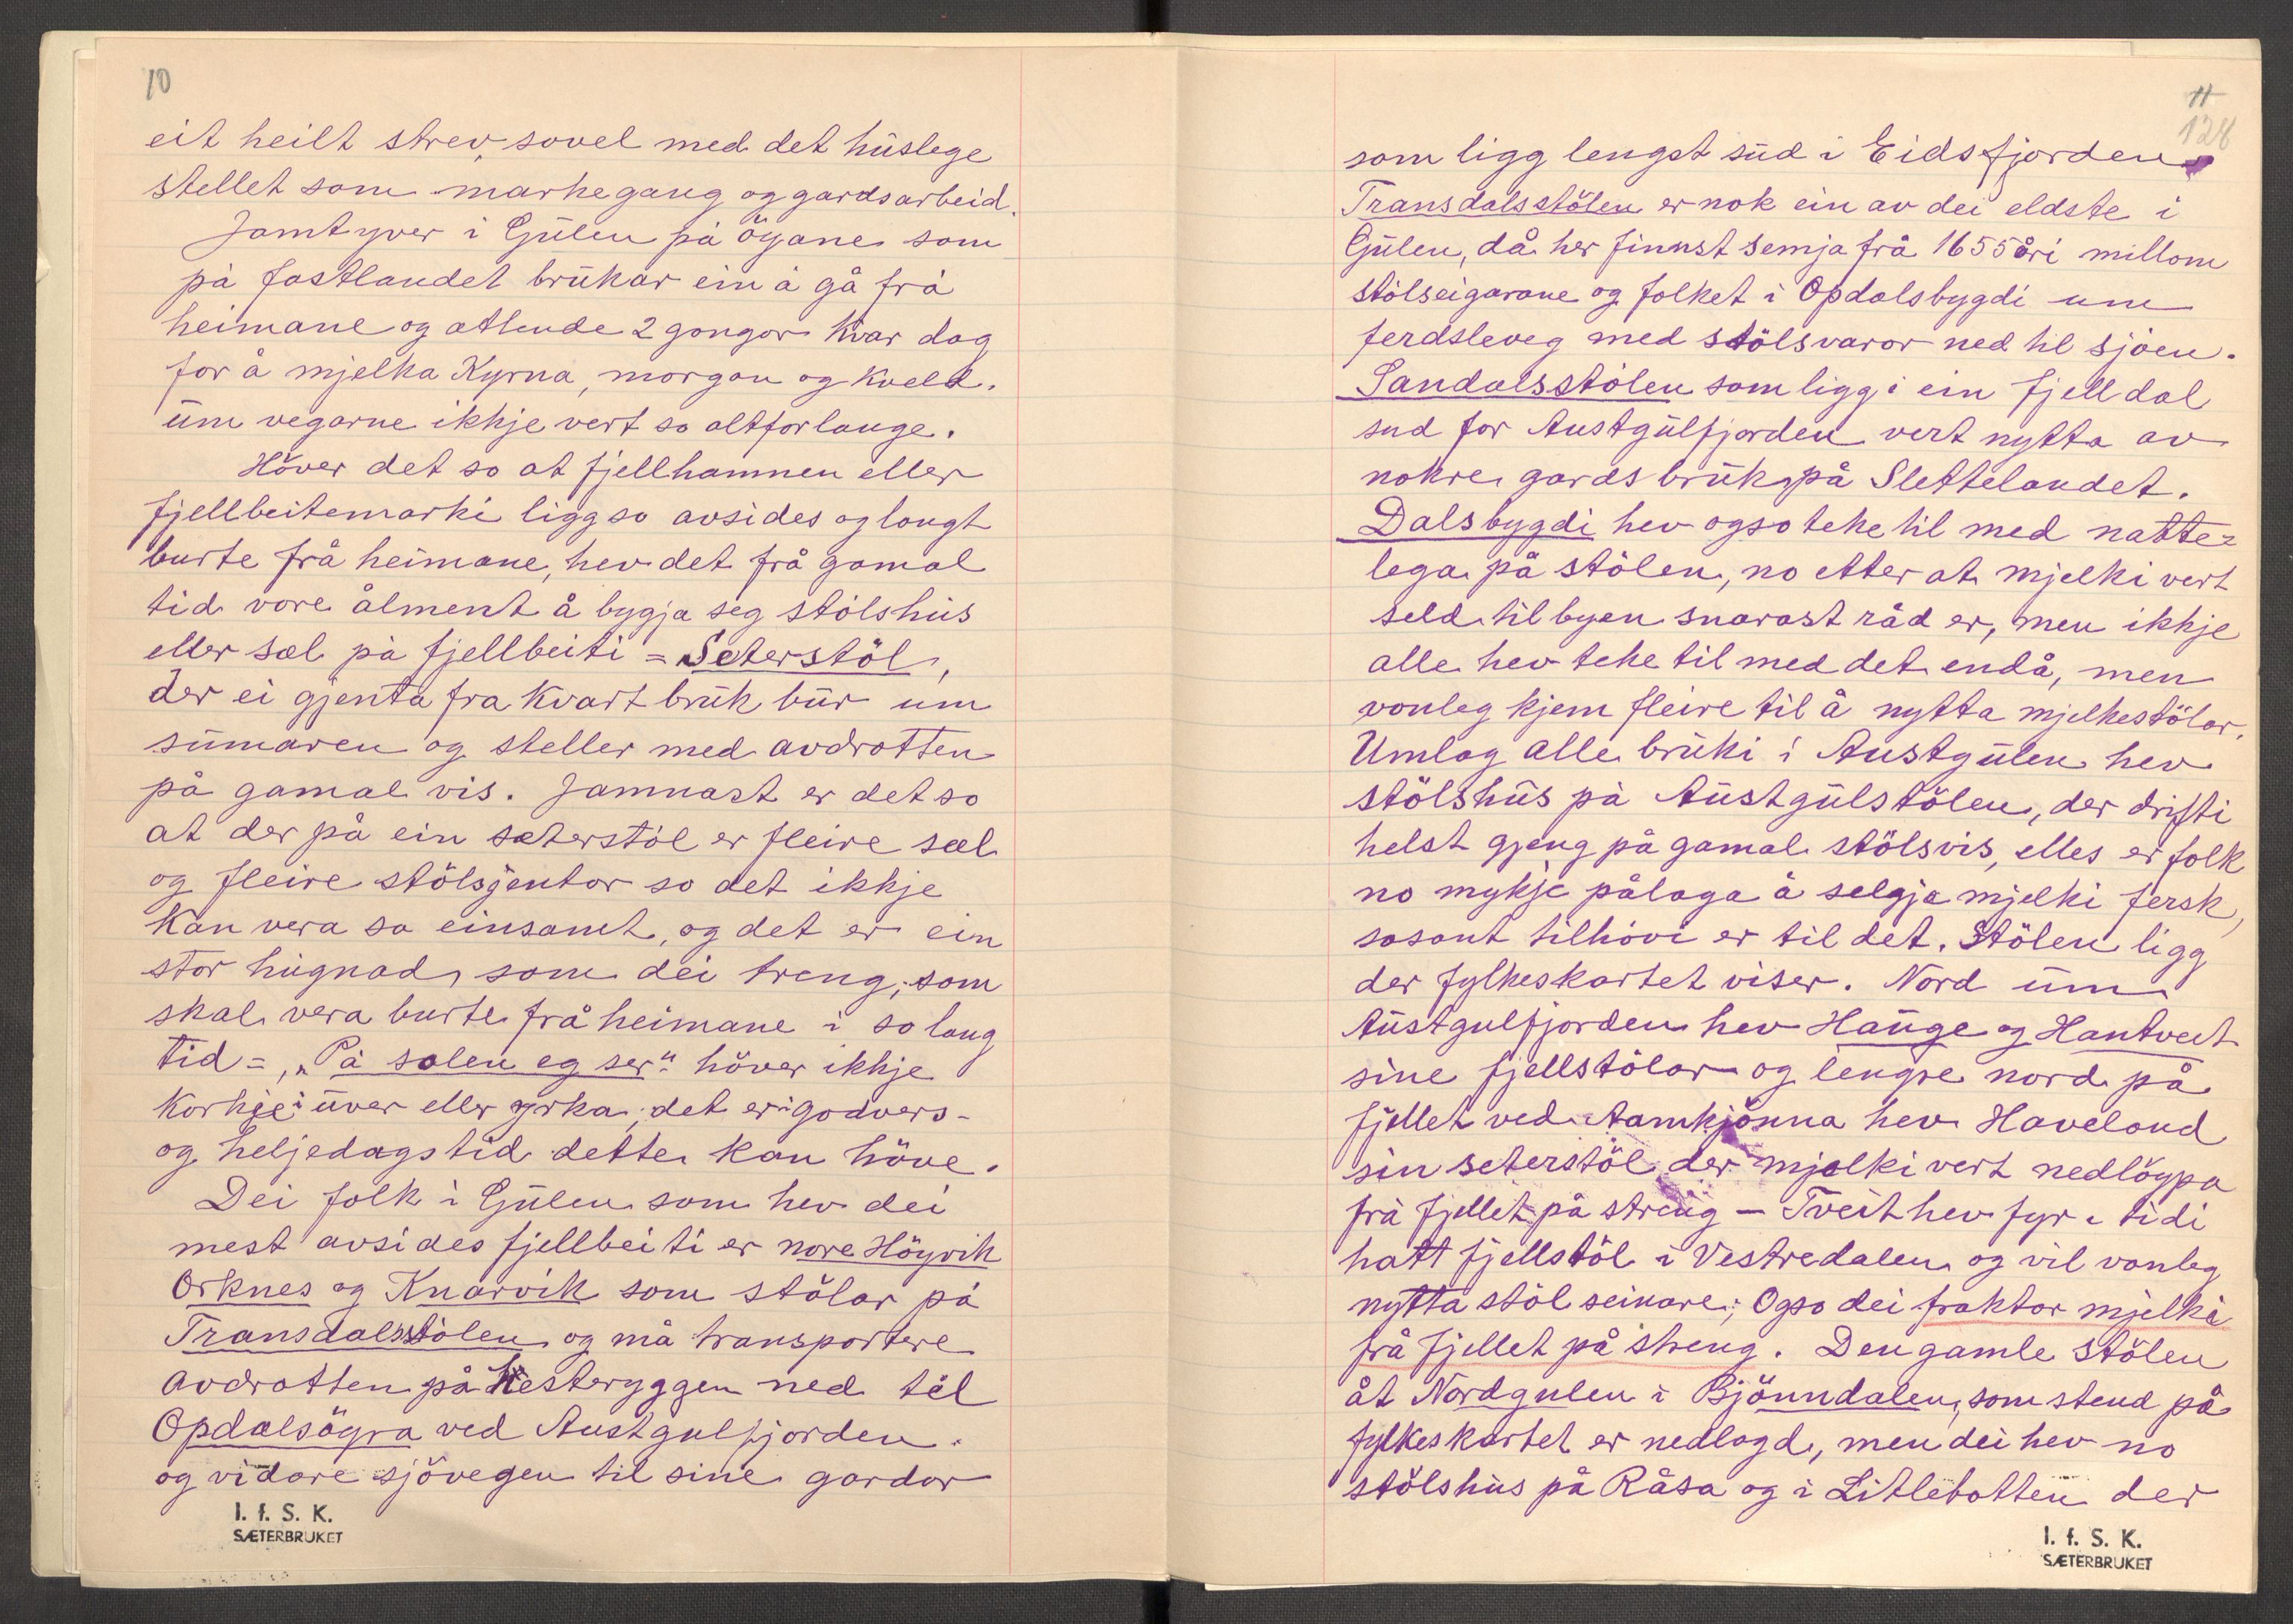 10
eit heilt strev, sovel med det huslege
stellet som markegang og gardsarbeid.
Jamtyver i Gulen på öyane som
på fastlandet brukar ein å gå frå
heimane og attende 2 gongor kvar dag
for å mjelka Kyrna, morgon og kveld.
um vegarne ikkje vert so altforlange.
Höver det so at fjellhamnen eller
fjellbeitemarki ligg so avsides og langt
burte frå heimane, hev det frå gamal
tid vore ålment å bygja seg stölshus
eller sæl på fjellbeiti = Seterstöl,
der ei gjenta fra kvart bruk bur um
sumaren og steller med avdrotten
på gamal vis. Jamnast er det so
at der på ein sæterstöl er fleire sæl
og fleire stölsgjentor so det ikkje
kan vera so einsamt, og det er ein
stor hugnad, som dei treng, som
skal vera burte frå heimane i so lang
tid =, „På solen eg ser" höver ikkje
korkje i uver eller yrka, det er i godvers-
og heljedagstid dette kan höve.
Dei folk i Gulen som hev dei
mest avsides fjellbeiti er nore Höyvik
Orknes og Knarvik som stölar på
Transdalsstölen og må transportere
avdrotten på hesteryggen ned til
Opdalsöyra ved Austgulfjorden.
og vidare sjövegen til sine gardar
I. f. S. K.
SÆTERBRUKET
11
128
som ligg lengst sud i Eidsfjorden.
Transdalsstölen er nok ein av dei eldste i
Gulen, då her finnst semja frå 1655 åri millom
stölseigarane og folket i Opdalsbygdi um
ferdsleveg med stölsvaror ned til sjöen.
Sandalsstölen som ligg i ein fjelldal
sud for Austgulfjorden vert nytta av
nokre gardsbruk på Slettelandet.
Dalsbygdi hev ogso teke til med natte=
lega på stölen, no etter at mjelki vert
seld til byen snarast råd er, men ikkje
alle hev teke til med det endå, men
vonleg kjem fleire til å nytta mjelkestölar.
Umlag alle bruki i Austgulen hev
stölshus på Austgulstölen, der drifti
helst gjeng på gamal stölsvis, elles er folk
no mykje pålaga å selgja mjelki fersk,
sosant tilhövi er til det. Stölen ligg
der fylkeskartet viser. Nord um
Austgulfjorden hev Hauge og Hantveit
sine fjellstölar og lengre nord på
fjellet ved Aamkjönna hev Haveland
sin seterstöl der mjelki vert nedlöypa
frå fjellet på streng – Tveit hev fyr i tidi
hatt fjellstöl i Vestredalen og vil vonleg
nytta stöl seinare; Ogso dei fraktar mjelki
frå fjellet på streng. Den gamle stölen
åt Nordgulen i Bjönndalen, som stend på
fylkeskartet er nedlagd, men dei hev no
stölshus på Råsa og i Litlebotten der
I. f. S. K.
SÆTERBRUKET